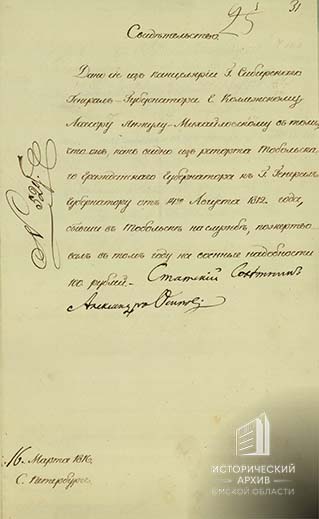 31
25
Свидѣтельство.
Дано сіе изъ канцеляріи Г. Сибирскаго
Генералъ-Губернатора Г. Коллежскому
Ассесору Михайловскому въ томъ,
что онъ, какъ видно изъ рапорта Тобольска-
го Гражданскаго Губернатора къ Г. Генералъ
Губернатору отъ 4го Августа 1812. года,
въ Тобольскѣ на службѣ, пожертво-
валъ въ томъ году на военныя надобности
100 рублей. Статскій Совѣтникъ
Александръ
N 325.
16. Марта 1816.
С. Петербургъ.
ИСТОРИЧЕСКИЙ
АРХИВ
ОМСКОЙ ОБЛАСТИ